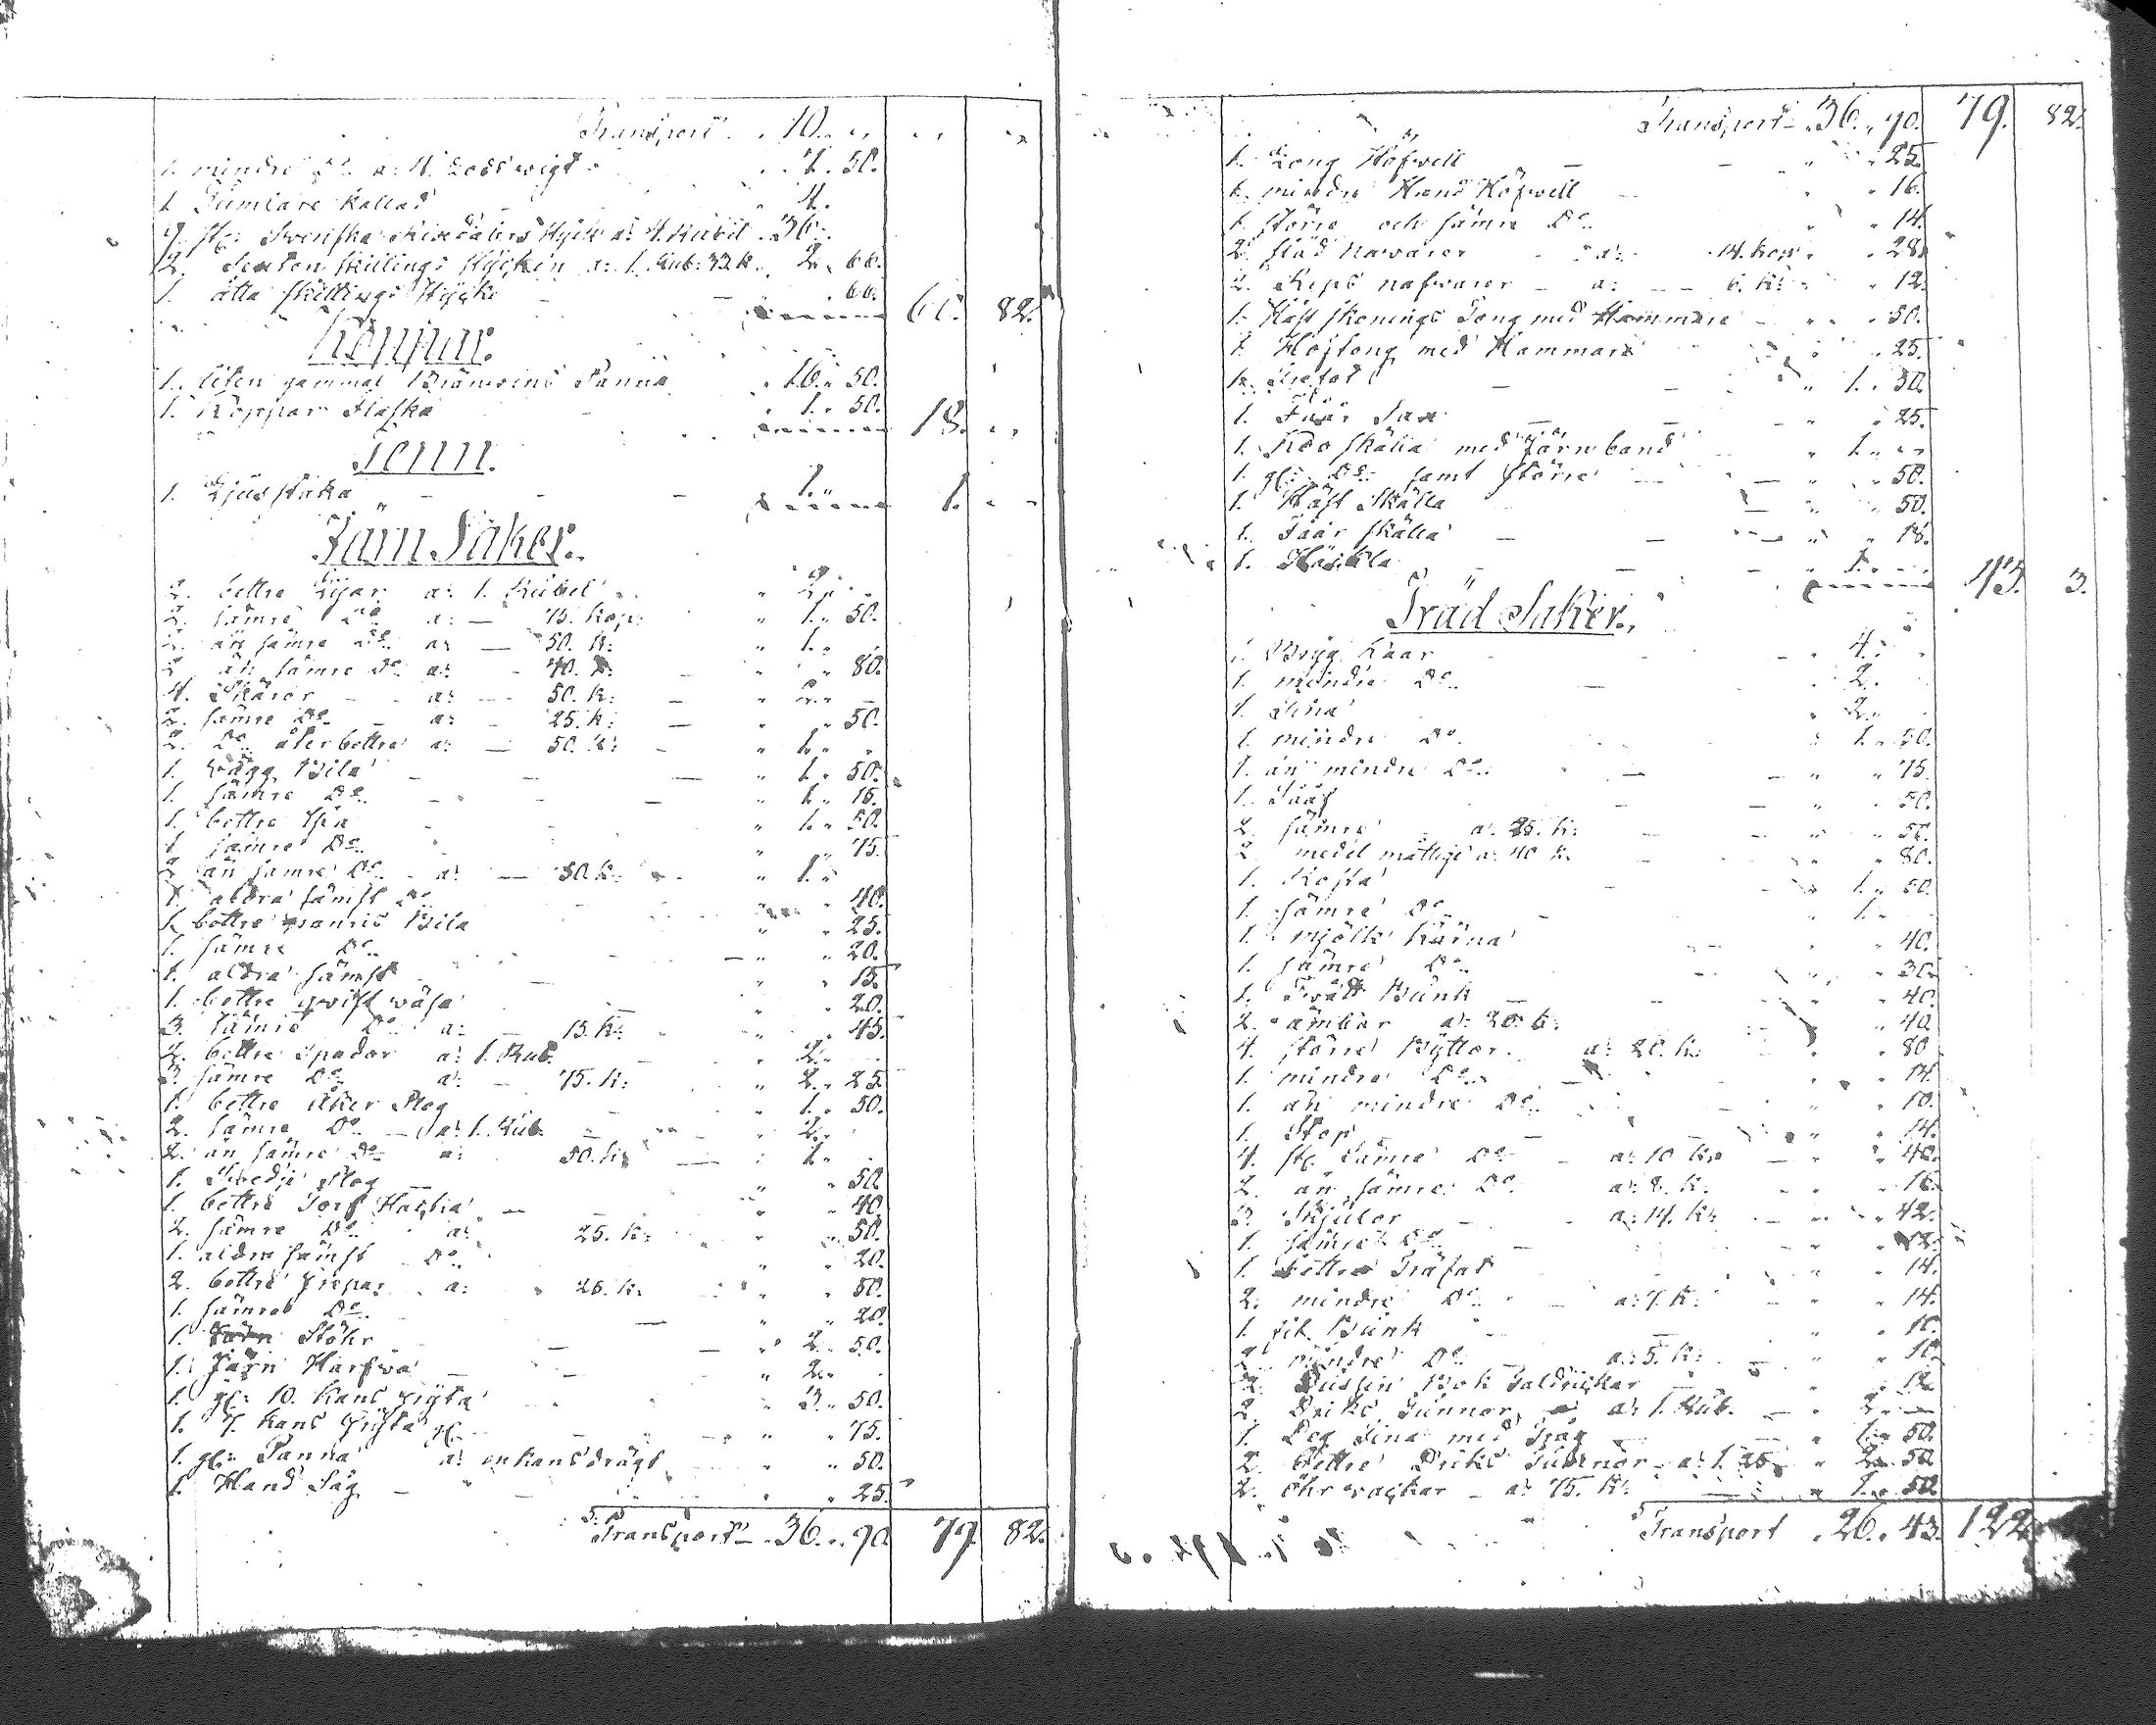 Transport 10. „
1. mindre Do a: 4. Lods wigt 7. 50.
1 Tumlare kallad 4.
9. st: Svenska Riksdalers stycken a: 4. Rubel 36.
2. Sexton skillings stycken a: 1. Rub: 33. k. 2. 66.
1. åtta skillings stycke 66.
61. 82.
Koppar.
1. liten gammal Bränvins Panna 16. 50.
1. Koppar flaska 1. 50.
18. „
Tenn.
1. Ljusstaka 1.
1. „
Järn Saker.
2. bettre Lijar a: 1. Rubel 2.
2. sämre Do a: 75. kop: 1. 50.
2. än sämre Do a: 50. k: 1.
2. än sämre Do a: 40. k: 80.
4. Skäror a: 50. k: 2.
2. sämre Do a: 25. k: 50.
2. Do åter bettre a: 50. k: 1.
1. Vägg Bila 1. 50.
1. sämre Do 1. 15.
1. bettre Yxa 1. 50.
1 sämre Do 75.
2 än sämre Do a: 50. k: 1.
1. aldra sämst Do 40.
1. bettre Bila 25.
1. sämre Do 20.
1. aldra sämst 15.
1. bettre qwist wäsa 20.
3. sämre Do a: 15. k: 45.
2. bettre Spador a: 1. Rub. 2.
3. sämre Do a: 75. k: 2. 25.
1. bettre åker Plog 1. 50.
2. sämre Do a: 1. Rub. 2.
2. än sämre Do a: 50. k: 1.
1. Svedje Plog 50.
1. bettre Torf Hacka 40.
2. sämre Do a: 25. k: 50.
1. aldra sämst Do 20.
2. bettre grepar a: 25. k: 50.
1. sämre Do 20.
1. Störr 2. 50.
1. Järn Harfwa 2.
1. gl: 10. kans grÿta 3. 50.
1. 7. kans grÿta gl. 75.
1. gl: Panna a: en kans drägt 50.
1. Hand Såg 25.
Transport 36. 90. 79. 82.
Transport 36. 90. 79. 82.
1. Long Höfwell 25.
1. mindre Hand Höfwell 16.
1. större och sämre Do 14.
2. städ nawarer a: 14. kop. 28.
2. Reps nafwarer a: 6. k: 12.
1. Häst skonings Tong med Hammare 50.
1. Hoftong med Hammare 25.
1. 50.
1. Fåår Sax 25.
1. Koo skälla med Järn band 1. „
1. gl: Do samt större 50.
1. Häst Skälla 50.
1. Fåår skälla 18.
1. Häckla 1.
43. 3.
Träd Saker.
1. Brÿgg Kaar 4.
1. mindre Do 2.
1. Tina 2.
1. mindre Do 1. 50.
1. än mindre Do 75.
1. Sååf 50.
2. sämre a: 25. k: 50.
2. medel måttige a: 40 k. 80.
1. Kosta 1. 50.
1. sämre Do 1.
1. mjölk kärna 40.
1. sämre Do 30.
1. Tvätt Bunk 40.
2. ämbar a: 20. k: 40.
4. större Bÿttor a: 20. k: 80
1. mindre Do 14.
1. än mindre Do 10.
1. Stop 14.
4. st: Sämre Do a: 10 k: 40.
2. än sämre Do a: 8. k. 16.
3. Skjulor a: 14. k: 42.
1. sämre Do 12.
1. bettre Träfat 14.
2. mindre Do a: 7. k: 14.
1. fil. Bunk 10.
2. mindre Do a: 5. k: 10.
2. Dussin Bok Taldrickar 12.
2. Dricks Tunnor a: 1. Rub. 2.
1. Deg Tina med Tråg 1. 50.
2. bettre Dricks Tunnor a: 1. 25. 2. 50
2. a: 75. k: 1. 50
Transport 26. 43. 122.